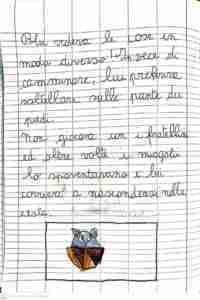 Blu vedeva le cose in
modo diverso! Invece di
camminare, lui preferiva
saltellare sulle punte dei
piedi.
Non giocava con i fratellini
ed altre volte i miagolii
lo spaventavano e lui
correva a nascondersi nella
cesta.